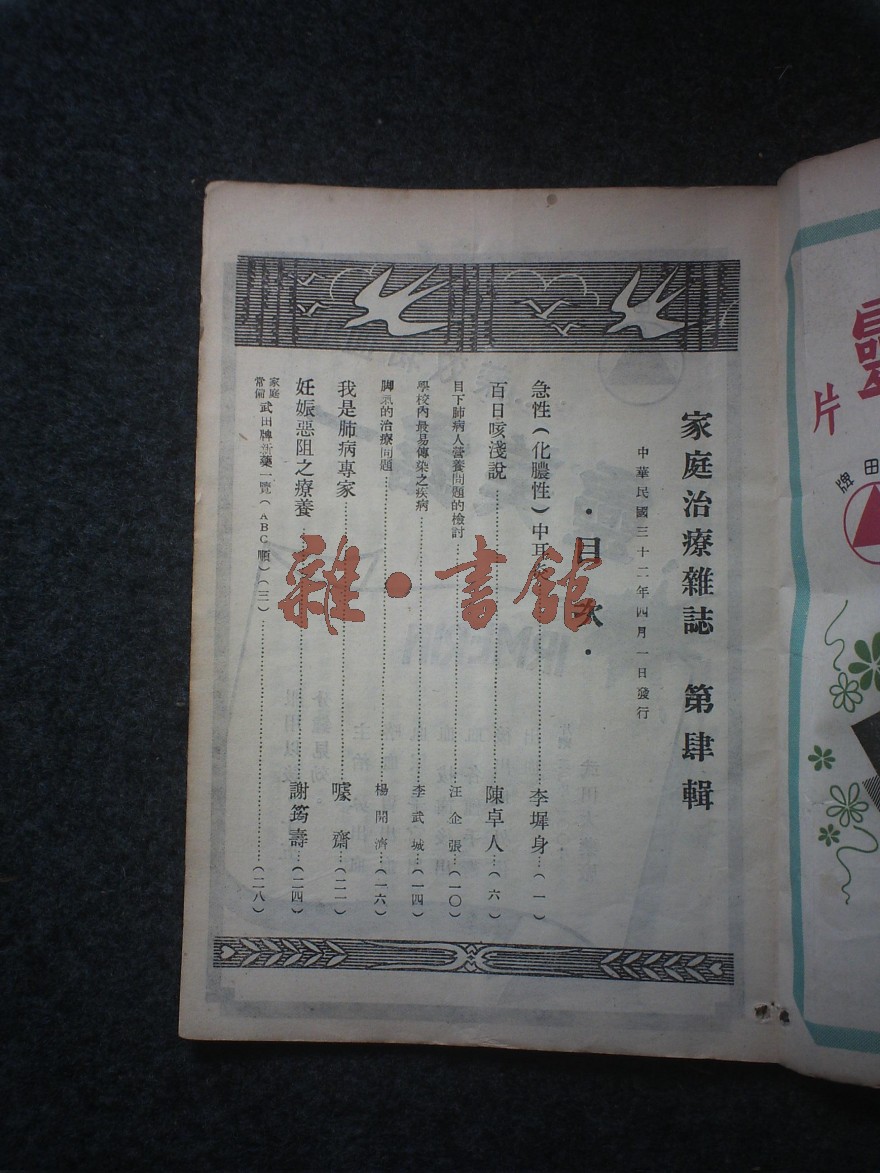 家庭治療雜誌　第肆輯
中華民國三十二年四月一日發行
・目次・
急性(化膿性)中耳……李墀身…(一)
百日咳淺說……陳卓人…(六)
目下肺病人營養問題的檢討……汪企張…(一〇)
學校內最易傳染之疾病……李武城…(一四)
脚氣的治療問題……楊開濟…(一六)
我是肺病專家……噓齋…(二一)
妊娠惡阻之療養……謝筠壽…(二四)
家庭常備 武田牌新藥一覽(ABC順)(三)……(二八)
雜・書館
片
田牌